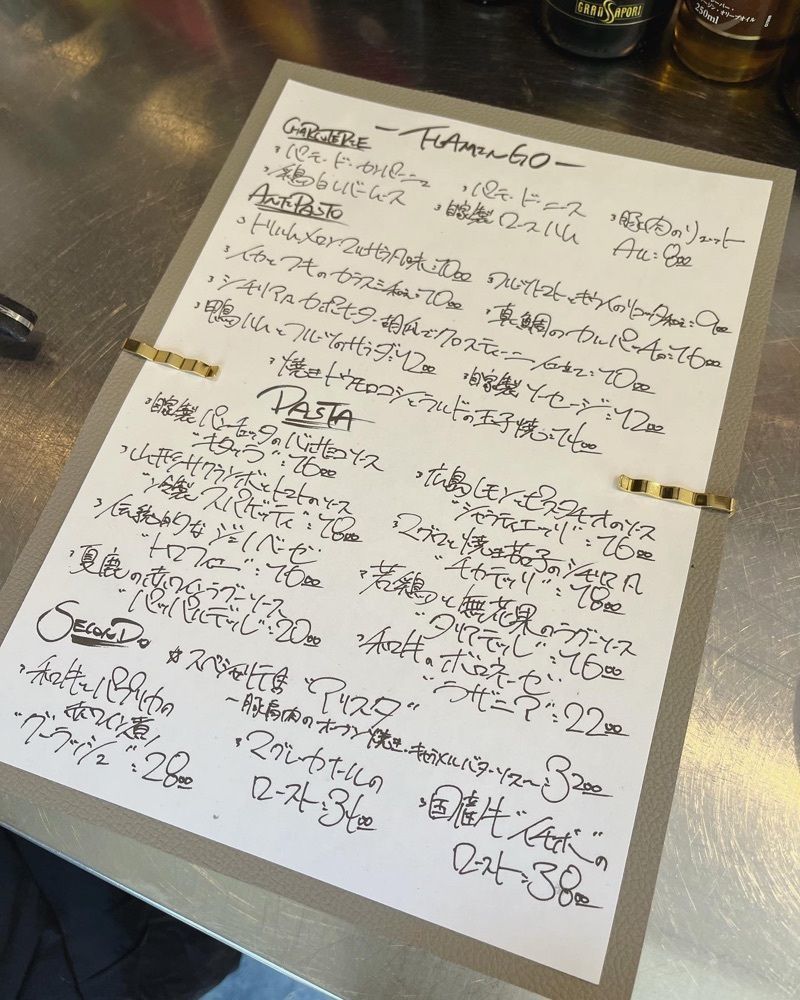 GRAN SAPORI
250ml
ージン・オリーブオイル
— FLAMINGO —
CHARCUTERIE
・パテ・ド・カンパーニュ
・パテ・ド・ニース
・豚肉のリエット
・鶏白レバームース
・自家製ロースハム
ALL:800
ANTIPASTO
・トリハム、メロン、マルサラ風味:1000
・フルーツトマトとキウイのリコッタ和え:900
・イカとフキのカラスミ和え:1000
・真鯛のカルパッチョ:1600
・シチリア風カポナータ・胡瓜でクロスティーニ仕立て:1000
・鴨ハムとフルーツのサラダ:1200
・自家製ソーセージ:1200
・焼きトウモロコシとラルドの玉子焼き:1400
PASTA
・自家製パンチェッタのバルサミコソース
"キタッラ":1600
・広島レモン・ピスタチオのソース
"シャラティエッリ":1600
・山形サクランボとトマトのソース
"冷製スパゲッティ":1800
・マグロと焼き茄子のシチリア風
"カサレッチェ":1800
・伝統的なジェノベーゼ
"トロフィエ":1600
・若鶏と無花果のラグーソース
"タリアテッレ":1600
・夏鹿の赤ワインラグーソース
"パッパルデッレ":2000
・和牛のボロネーゼ
"ラザニア":2200
SECONDO
☆スペシャリテ "アリスタ"
〜豚肩肉のオーブン焼き・キャラメルバターソース〜:3200
・和牛とパプリカの
赤ワイン煮!
"グーラッシュ":2800
・マグレカナールの
ロースト:3400
・国産牛"イチボ"の
ロースト:3800